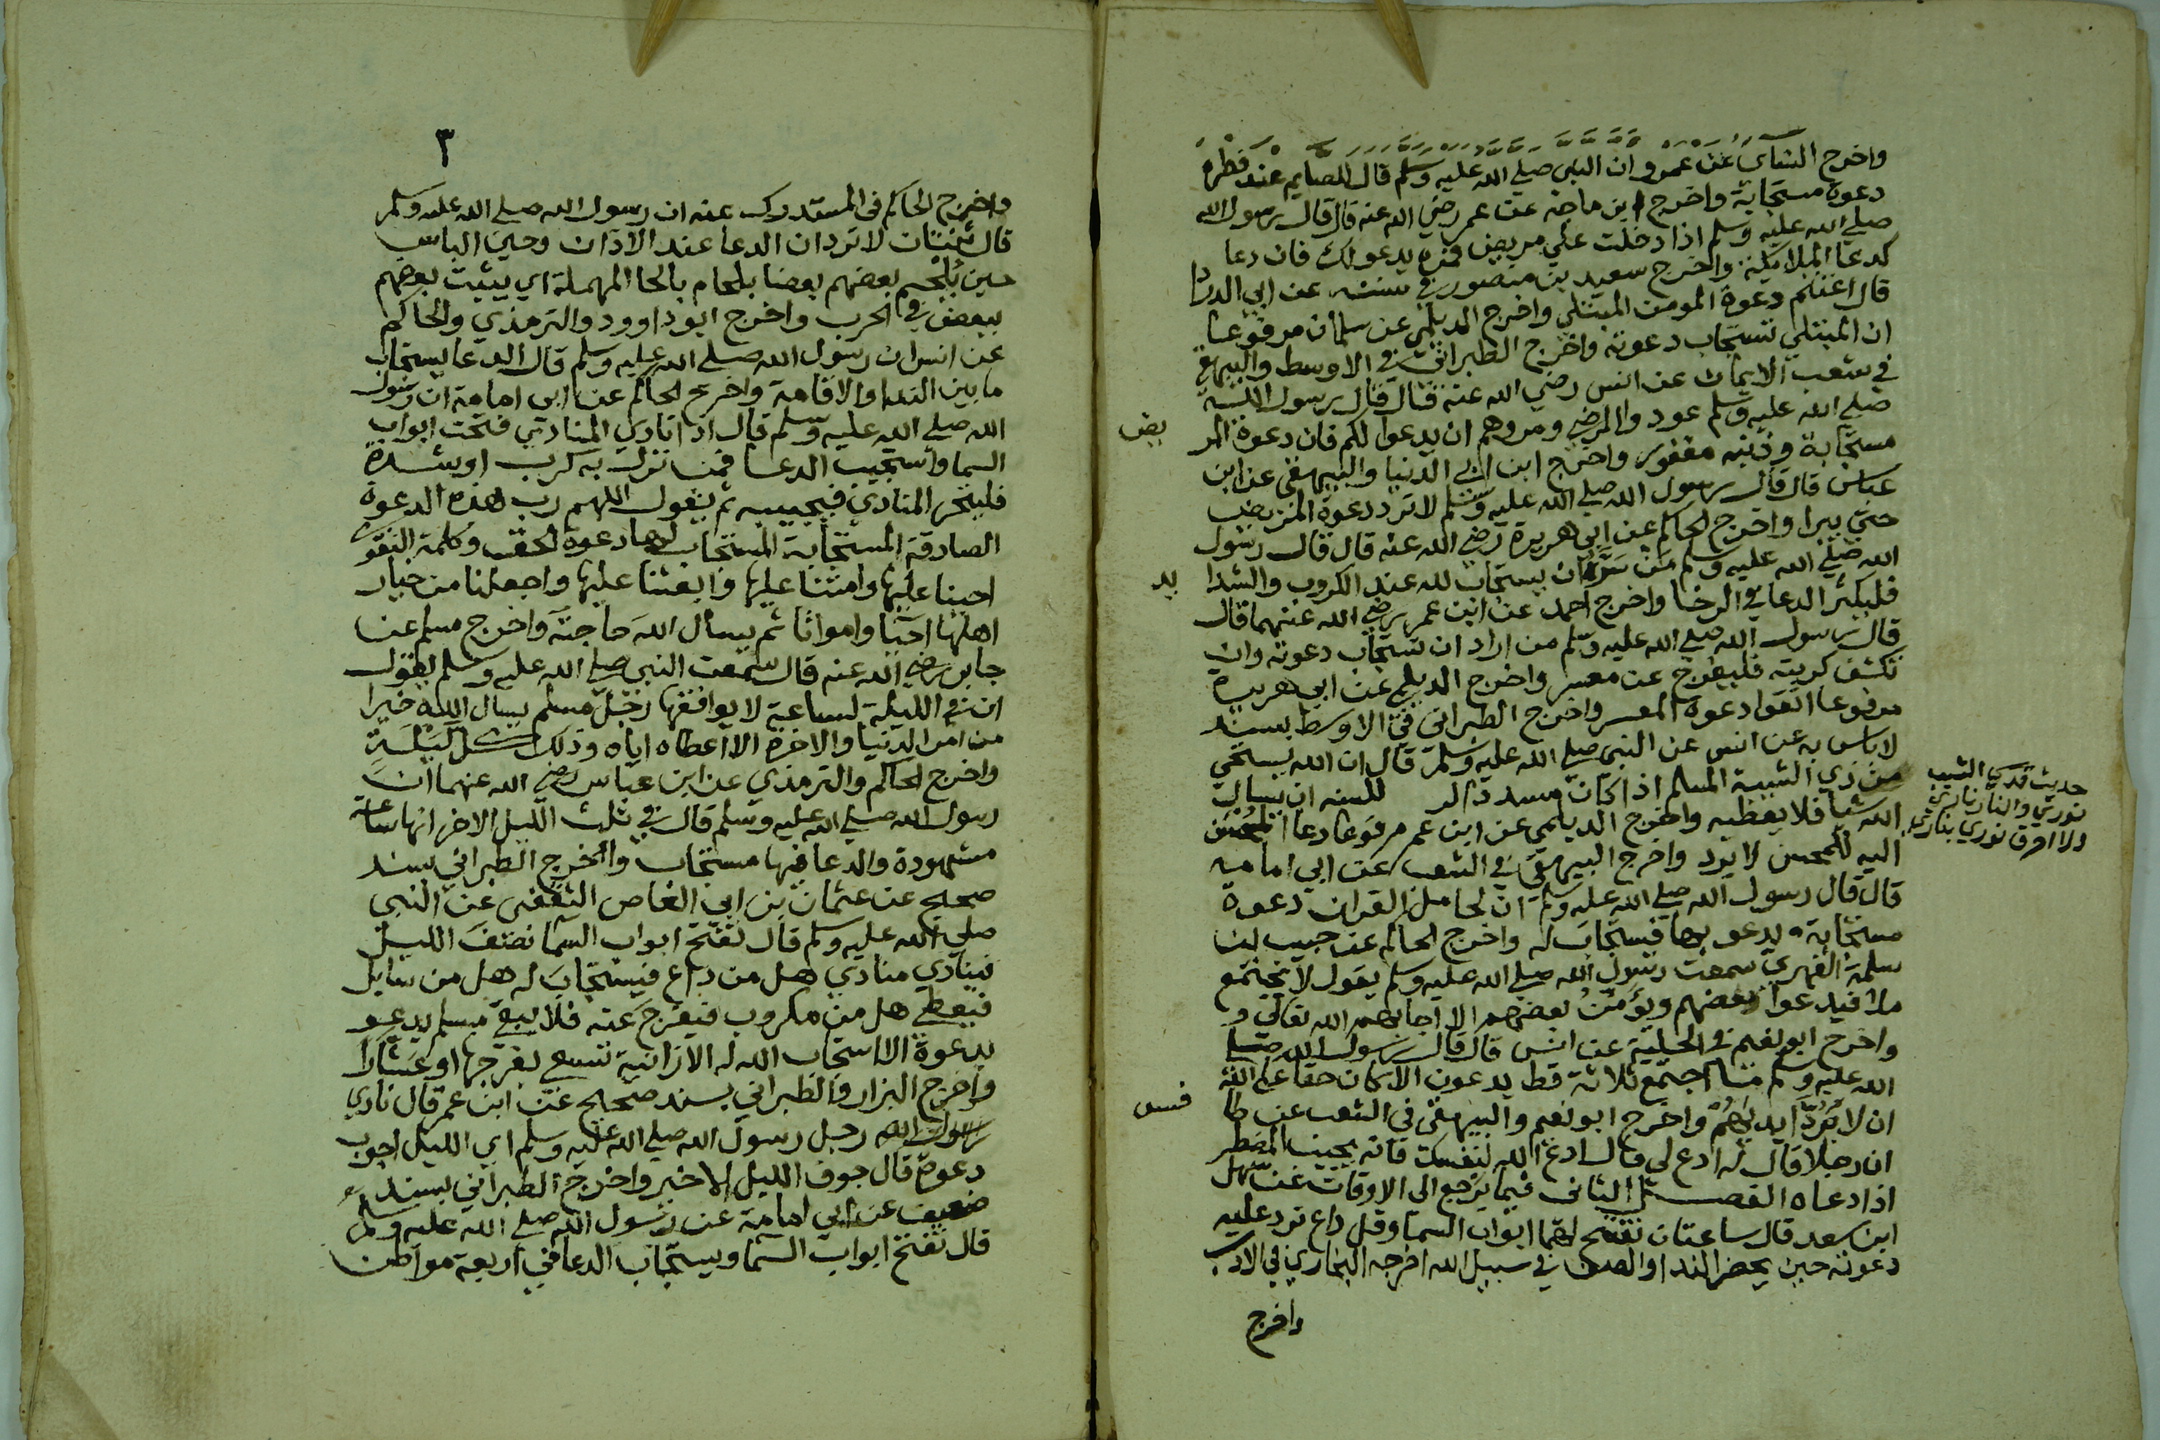 واخرج النسائي عن عمرو ان النبي صلى الله عليه وسلم قال للصايم عند فطره
دعوة مستجابة واخرج ابن ماجه عن عمر رضي الله عنه قال قال رسول الله
صلى الله عليه وسلم اذا دخلت علي مريض فمره يدعو لك فان دعا
كدعا الملايكة واخرج سعيد بن منصور في سننه عن ابي الدردا
قال اغتنم دعوة المومن المبتلي واخرج الديلمي عن سلمان مرفوعا
ان المبتلي تستجاب دعوته واخرج الطبراني في الاوسط والبيهقي
في شعب الايمان عن انس رضي الله عنه قال قال رسول الله
صلى الله عليه وسلم عودوا المرضي ومروهم ان يدعوا لكم فان دعوة المر
يض
مستجابة وذنبه مغفور واخرج ابن ابي الدنيا والبيهقي عن ابن
عباس قال قال رسول الله صلى الله عليه وسلم لا ترد دعوة المريض
حتي يبرا واخرج الحاكم عن ابي هريرة رضي الله عنه قال قال رسول
الله صلى الله عليه وسلم من سره ان يستجاب لله عند الكروب والشدا
يد
فليكثر الدعا في الرخا واخرج احمد عن ابن عمر رضي الله عنهما قال
قال رسول الله صلى الله عليه وسلم من اراد ان تستجاب دعوته وان
تكشف كربته فليفرج عن معسر واخرج الديلمي عن ابي هريرة
مرفوعا اتقوا دعوة المعسر واخرج الطبراني في الاوسط بسند
لا باس به عن انس عن النبي صلى الله عليه وسلم قال ان الله يستحي
من ذي الشيبة المسلم اذا كان مسددا للسنه ان يسال
الله شيا فلا يعطيه واخرج الديلمي عن ابن عمر مرفوعا دعا المحسن
اليه للمحسن لا يرد واخرج البيهقي في الشعب عن ابي امامه
قال قال رسول الله صلى الله عليه وسلم ان لحامل القران دعوة
مستجابة يدعو بها فيستجاب له واخرج الحاكم عن حبيب بن
سلمة الفهري سمعت رسول الله صلى الله عليه وسلم يقول لا يجتمع
ملا فيدعوا بعضهم ويؤمن بعضهم الا اجابهم الله تعالي و
واخرج ابو نعيم في الحلية عن انس قال قال رسول الله صلى
الله عليه وسلم ما اجتمع ثلاثة قط يدعون الا كان حقا علي الله
ان لا ترد ايديهم واخرج ابو نعيم والبيهقي في الشعب عن طا
فسس
ان رجلا قال له ادع لي قال ادع الله لنفسك فانه يجيب المضطر
اذا دعاه الفصل الثاني فيما يرجع الي الاوقات عن سهل
ابن سعد قال ساعتان تفتح لهما ابواب السما وقل داع ترد عليه
دعوته حين يحضر الندا والصف في سبيل الله اخرجه البخاري في الادب
واخرج
حديث قدسي الشيب
نوري والنار ناري
ولا احرق نوري بناري
٣
واخرج الحاكم في المستدرك عنه ان رسول الله صلى الله عليه وسلم
قال ثنتان لا تردان الدعا عند الاذان وحين الباس
حين يلحم بعضهم بعضا يلحام بالحا المهملة اي يثبت بعضهم
ببعض في الحرب واخرج ابو داوود والترمذي والحاكم
عن انس ان رسول الله صلى الله عليه وسلم قال الدعا يستجاب
ما بين الندا والاقامة واخرج الحاكم عن ابي امامة ان رسول
الله صلى الله عليه وسلم قال اذا نادي المنادي فتحت ابواب
السما واستجيب الدعا فمن نزل به كرب او شدة
فليتحر المنادي فيجيبه ثم يقول اللهم رب هذه الدعوة
الصادقة المستجابة المستجاب لها دعوة الحق وكلمة التقوي
احينا عليها وامتنا عليها وابعثنا عليها واجعلنا من خيار
اهلها احيا وامواتا ثم يسال الله حاجته واخرج مسلم عن
جابر رضي الله عنه قال سمعت النبي صلى الله عليه وسلم يقول
ان في الليلة لساعة لا يوافقها رجل مسلم يسال الله خيرا
من امر الدنيا والاخرة الا اعطاه اياه وذلك كل ليلة
واخرج الحاكم والترمذي عن ابن عباس رضي الله عنهما ان
رسول الله صلى الله عليه وسلم قال في ثلث الليل الاخر انها ساعة
مشهودة والدعا فيها مستجاب واخرج الطبراني بسند
صحيح عن عثمان بن ابي العاص الثقفي عن النبي
صلى الله عليه وسلم قال تفتح ابواب السما نصف الليل
فينادي منادي هل من داع فيستجاب له هل من سايل
فيعطي هل من مكروب فيفرج عنه فلا يبقي مسلم يدعو
بدعوة الا استجاب الله له الا زانية تسعي بفرجها او عشارا
واخرج البزار والطبراني بسند صحيح عن ابن عمر قال نادي
رسول الله رجل رسول الله صلى الله عليه وسلم اي الليل اجوب
دعوة قال جوف الليل الاخير واخرج الطبراني بسند
ضعيف عن ابي امامة عن رسول الله صلى الله عليه وسلم
قال تفتح ابواب السما ويستجاب الدعا في اربعة مواطن